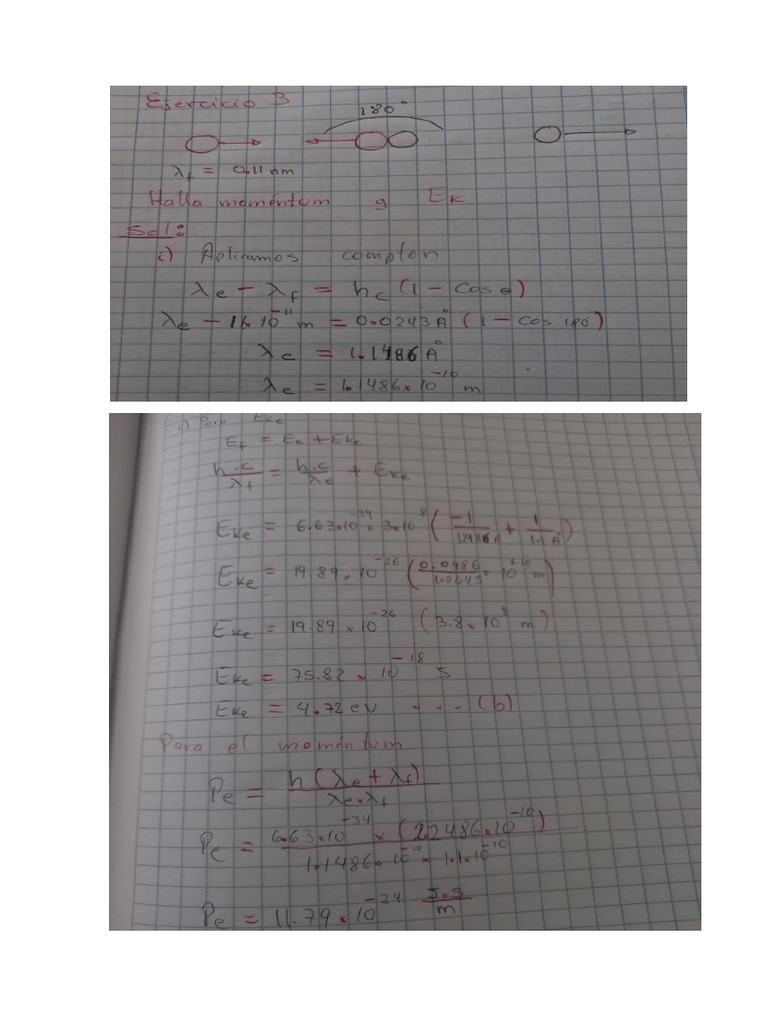 Ejercicio 3
180°
λf = 0.11 nm
Halla momentum y Ek
Sol:
i) Aplicamos compton
λe - λf = hc (1 - Cos θ)
λe - 11.10^-11 m = 0.0243 Å (1 - Cos 180)
λe = 1.1486 Å
λe = 1.1486 × 10^-10 m
ii) Para Eke
Ef = Ee + Eke
h.c/λf = h.c/λe + Eke
Eke = 6.63×10^-34 × 3×10^8 (-1/1.1486 Å + 1/1.1 Å)
Eke = 19.89 × 10^-26 (0.0486/ × 10^+10 m)
Eke = 19.89 × 10^-26 (3.8 × 10^8 m)
Eke = 75.82 × 10^-18 J
Eke = 4.72 eV ... (b)
Para el momentum
Pe = h (λe + λf)/λe.λf
Pe = 6.63×10^-34 × (2.2486×10^-10)/1.1486×10^-10 × 1.1×10^-10
Pe = 11.79 × 10^-24 J.s/m